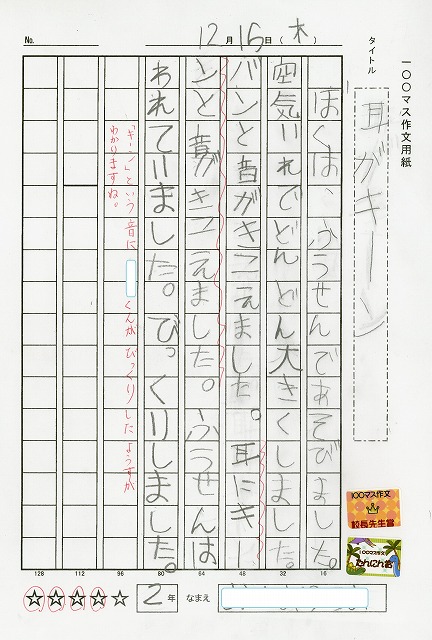 一〇〇マス作文用紙
タイトル
耳がキーン
No.
12月16日(木)
ぼくは、ふうせんであそびました。
空気いれでどんどん大きくしました。
バンと音がきこえました。耳にキー
ンと音がきこえました。ふうせんは
われていました。びっくりしました。
「キーン」という音に
くんがびっくりしたようすが
わかりますね。
100マス作文
校長先生賞
100マス作文
たんにん賞
128 112 96 80 64 48 32 16
☆☆☆☆☆
2年
なまえ